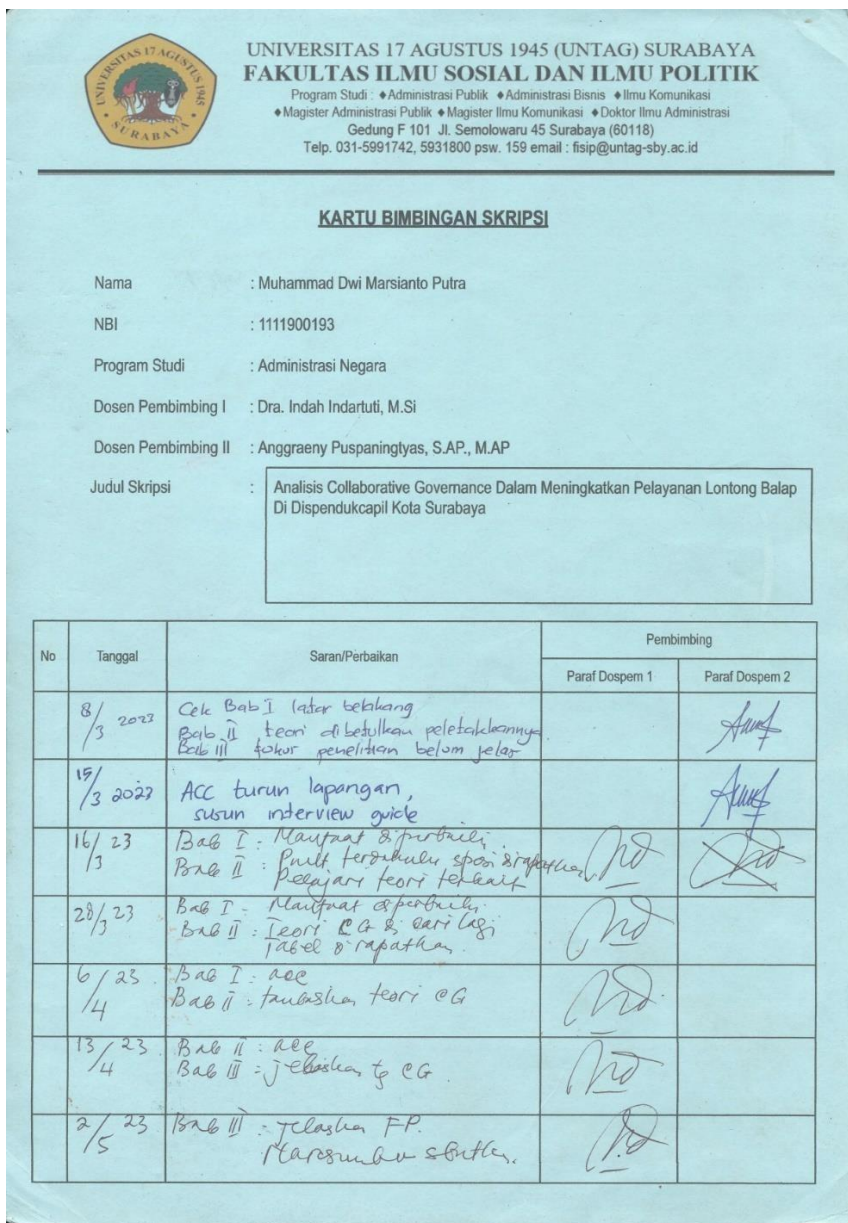 UNIVERSITAS 17 AGUSTUS 1945
SURABAYA
UNIVERSITAS 17 AGUSTUS 1945 (UNTAG) SURABAYA
FAKULTAS ILMU SOSIAL DAN ILMU POLITIK
Program Studi : ♦Administrasi Publik ♦Administrasi Bisnis ♦Ilmu Komunikasi
♦Magister Administrasi Publik ♦Magister Ilmu Komunikasi ♦Doktor Ilmu Administrasi
Gedung F 101 Jl. Semolowaru 45 Surabaya (60118)
Telp. 031-5991742, 5931800 psw. 159 email : fisip@untag-sby.ac.id
KARTU BIMBINGAN SKRIPSI
Nama : Muhammad Dwi Marsianto Putra
NBI : 1111900193
Program Studi : Administrasi Negara
Dosen Pembimbing I : Dra. Indah Indartuti, M.Si
Dosen Pembimbing II : Anggraeny Puspaningtyas, S.AP., M.AP
Judul Skripsi : Analisis Collaborative Governance Dalam Meningkatkan Pelayanan Lontong Balap
Di Dispendukcapil Kota Surabaya
No Tanggal Saran/Perbaikan Pembimbing
Paraf Dospem 1 Paraf Dospem 2
8/3 2023 Cek Bab I latar belakang
Bab II teori dibetulkan peletakkannya
Bab III fokus penelitian belum jelas
15/3 2023 ACC turun lapangan,
susun interview guide
16/3 23 Bab I : Manfaat diperbaiki
Bab II : terdahulu spasi dirapatkan
Pelajari teori terkait
28/3 23 Bab I : Manfaat diperbaiki
Bab II : Teori CG di cari lagi
Tabel dirapatkan
6/4 23 Bab I : acc
Bab II : teori CG
13/4 23 Bab II : acc
Bab III : jelaskan tg CG
2/5 23 Bab III : jelaskan FP.
Narasumber